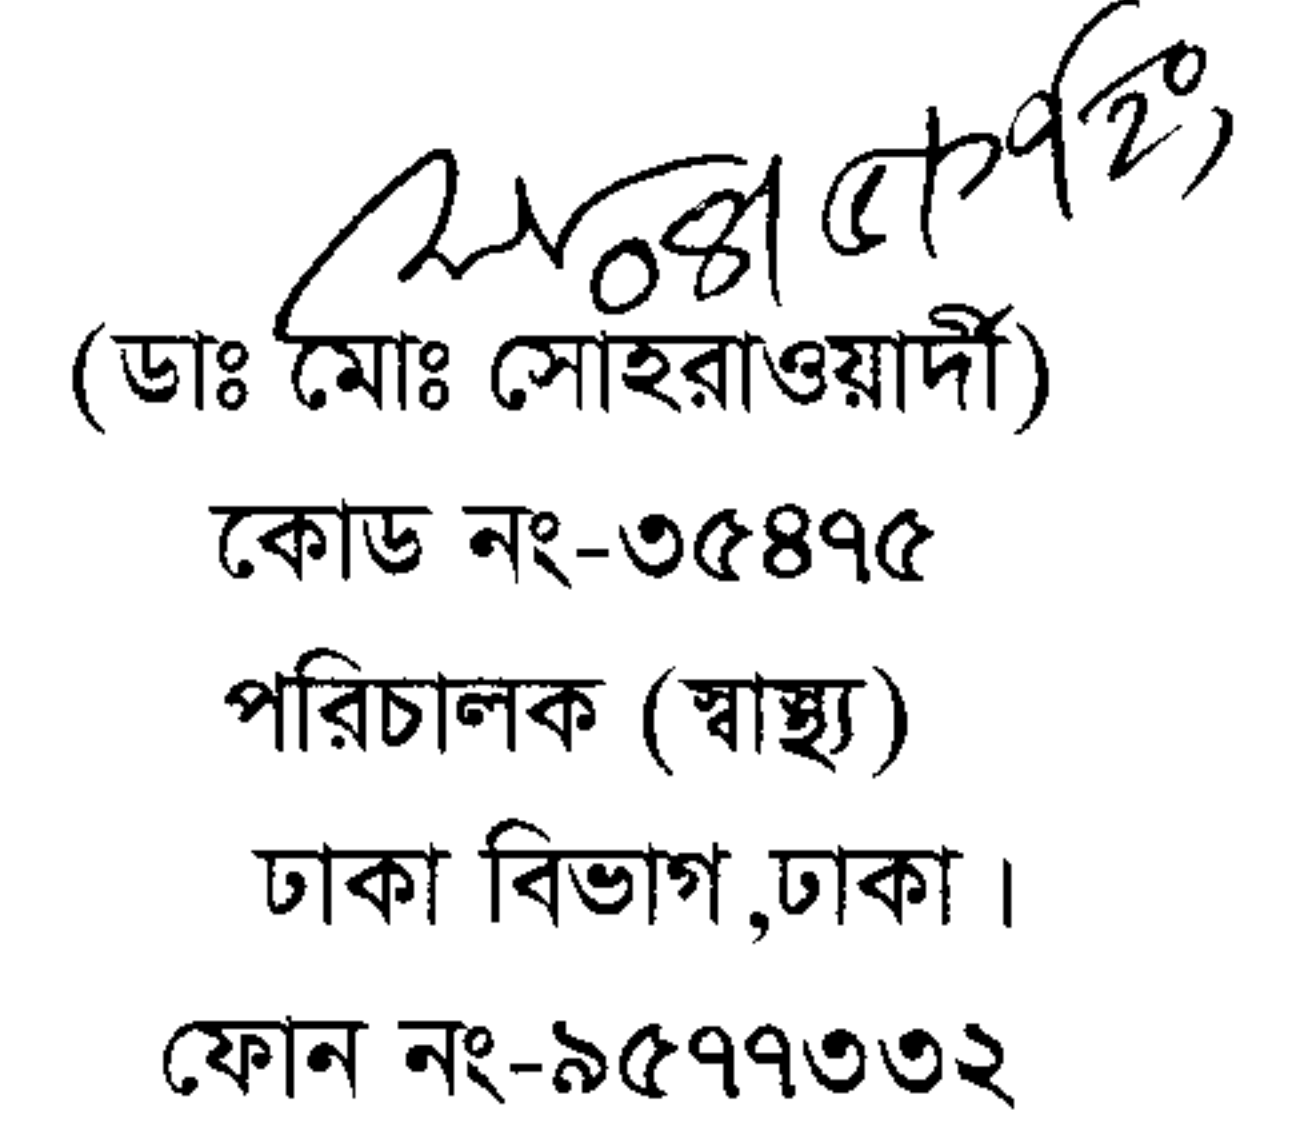 (ডাঃ মোঃ সোহরাওয়ার্দী)
কোড নং-৩৫৪৭৫
পরিচালক (স্বাস্থ্য)
ঢাকা বিভাগ,ঢাকা।
ফোন নং-৯৫৭৭৩৩২